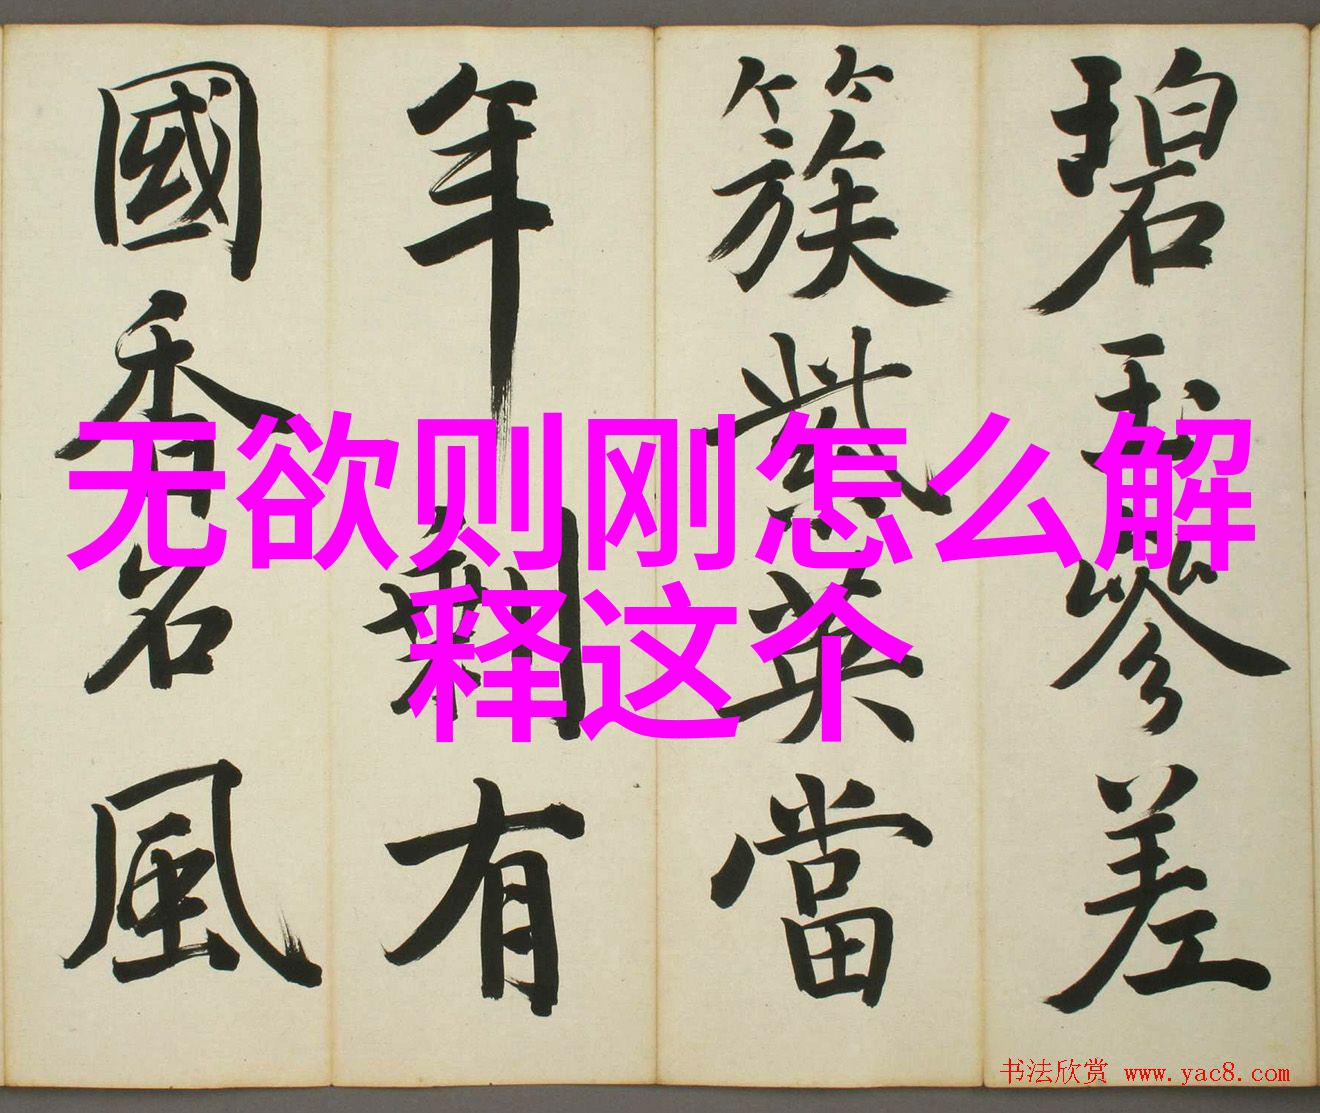 碧玉參差
簇紫英當
年剩有
國香名風
无欲则刚怎么解
释这个
书法欣赏 www.yac8.com